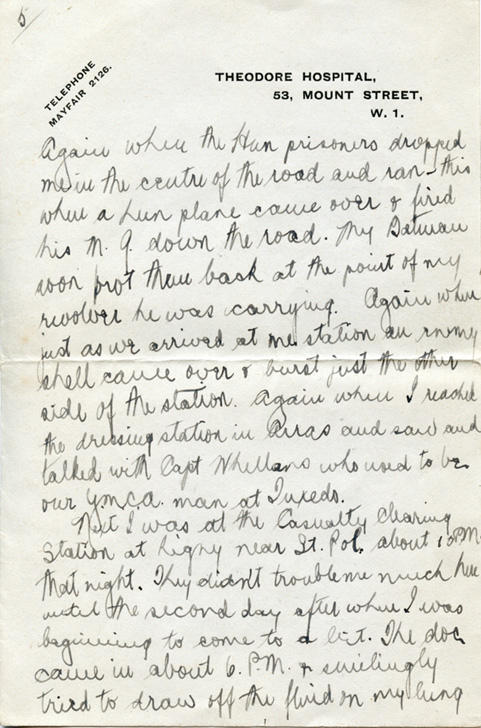 5
TELEPHONE
MAYFAIR 2126.
THEODORE HOSPITAL,
53, MOUNT STREET,
W. 1.
Again when the Hun prisoners dropped
me in the centre of the road and ran - this
when a hun plane came over & fired
his M. G. down the road. My Batman
soon brot them back at the point of my
revolver he was carrying. Again when
just as we arrived at me station an enemy
shell came over & burst just the other
side of the station. Again when I reached
the dressing station in Arras and saw and
talked with Capt Whellans who used to be
our Y.M.C.A. man at Tuxedo.
Next I was at the Casualty Clearing
Station at Ligny near St. Pol. about 10 P.M.
that night. They didn't trouble me much here
until the second day after when I was
beginning to come to a bit. The doc
came in about 6. P.M. & smilingly
tried to draw off the fluid on my lung